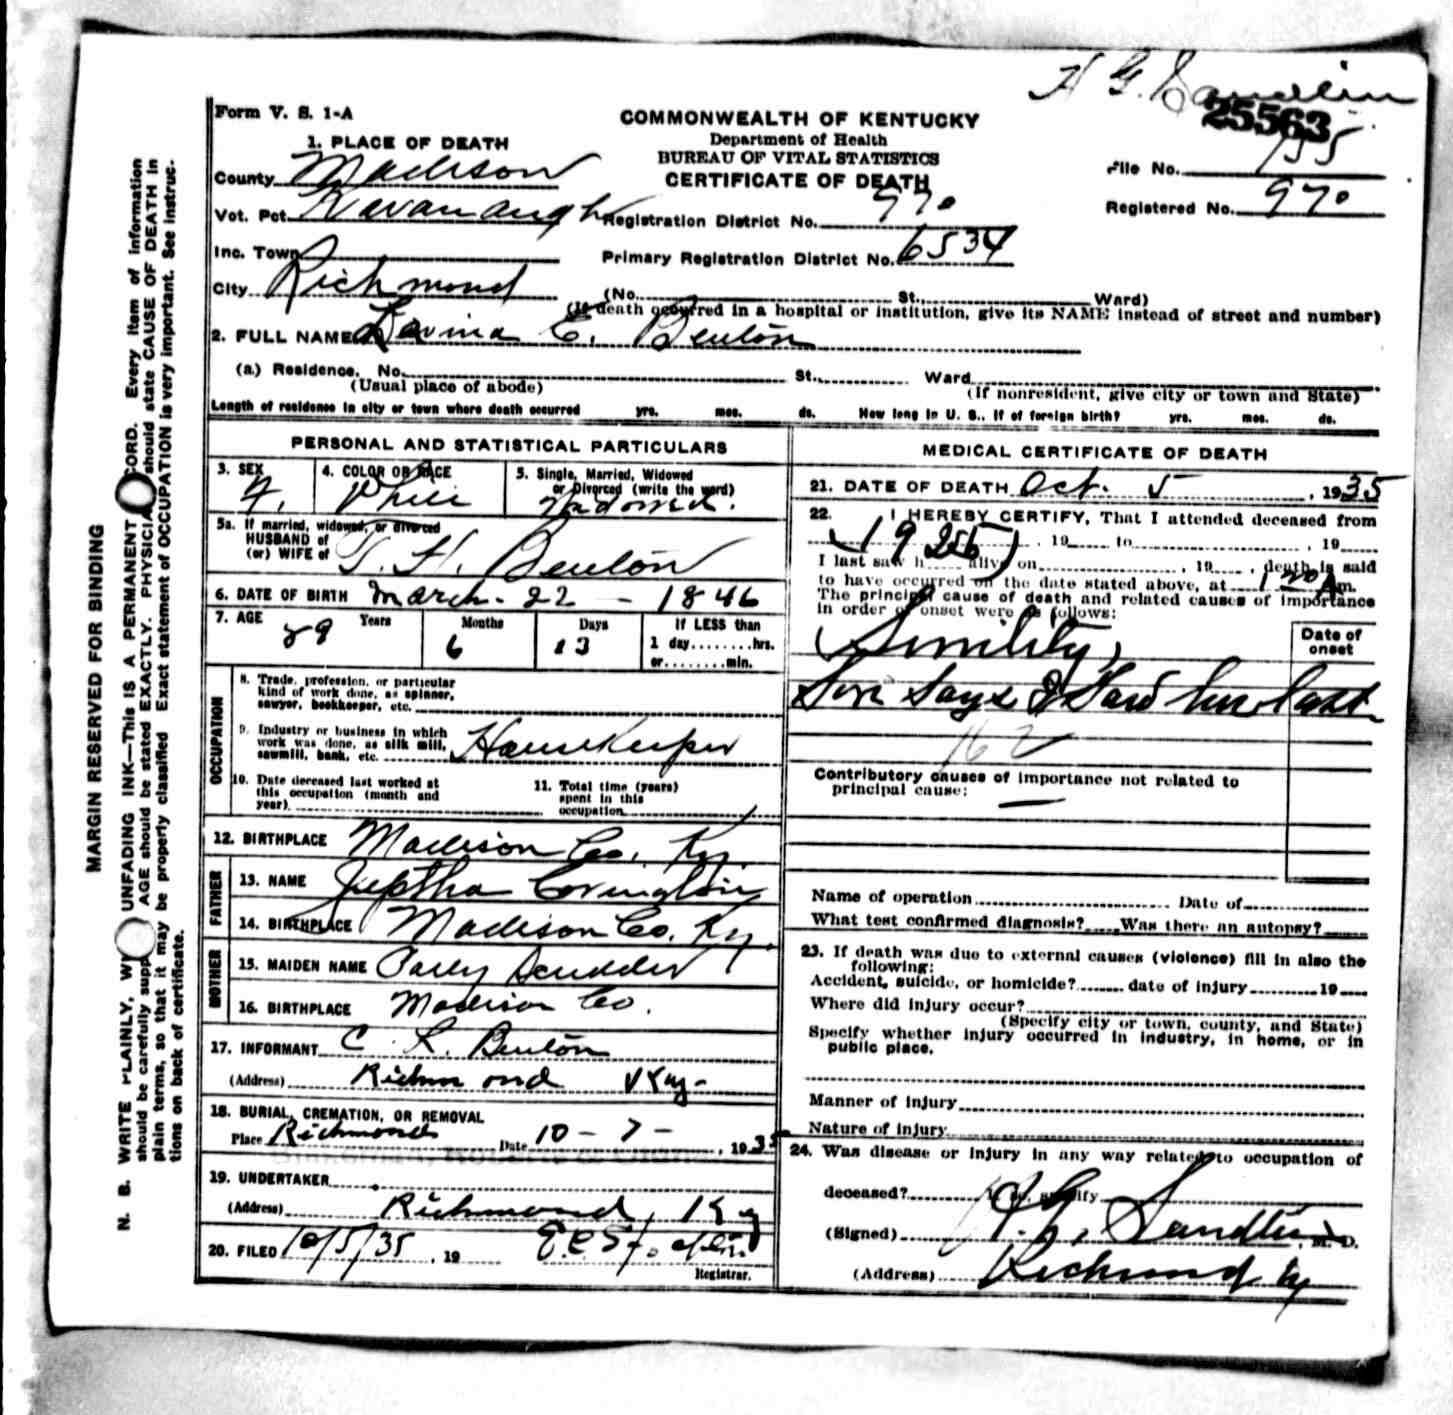 H G. Sandlin
25563
Form V. S. 1-A
COMMONWEALTH OF KENTUCKY
Department of Health
BUREAU OF VITAL STATISTICS
CERTIFICATE OF DEATH
File No. 155
Registered No. 970
1. PLACE OF DEATH
County Madison
Vot. Pct. Kavanaugh
Registration District No. 970
Inc. Town
Primary Registration District No. 6534
City Richmond
(No. St., Ward)
(If death occurred in a hospital or institution, give its NAME instead of street and number)
2. FULL NAME Lavina E. Benton
(a) Residence. No. St., Ward
(Usual place of abode) (If nonresident, give city or town and State)
Length of residence in city or town where death occurred yrs. mos. ds. How long in U. S., if of foreign birth? yrs. mos. ds.
PERSONAL AND STATISTICAL PARTICULARS
3. SEX F.
4. COLOR OR RACE White
5. Single, Married, Widowed
or Divorced (write the word)
Widowed.
5a. If married, widowed, or divorced
HUSBAND of
(or) WIFE of
T. H. Benton
6. DATE OF BIRTH March - 22 - 1846
7. AGE 89 Years 6 Months 13 Days
If LESS than
1 day........hrs.
or........min.
OCCUPATION
8. Trade, profession, or particular
kind of work done, as spinner,
sawyer, bookkeeper, etc.
9. Industry or business in which
work was done, as silk mill,
sawmill, bank, etc. Housekeeper
10. Date deceased last worked at
this occupation (month and
year)
11. Total time (years)
spent in this
occupation
12. BIRTHPLACE Madison Co. Ky.
FATHER
13. NAME Jeptha Covington
14. BIRTHPLACE Madison Co. Ky.
MOTHER
15. MAIDEN NAME
16. BIRTHPLACE Madison Co.
17. INFORMANT C. L. Benton
(Address) Richmond Ky-
18. BURIAL, CREMATION, OR REMOVAL
Place Richmond Date 10 - 7 - , 1935
19. UNDERTAKER
(Address) Richmond, Ky
20. FILED 10/5/35, 19
Registrar.
MEDICAL CERTIFICATE OF DEATH
21. DATE OF DEATH Oct. 5, 1935
22. I HEREBY CERTIFY, That I attended deceased from
, 19 to , 19
I last saw h alive on , 19 , death is said
to have occurred on the date stated above, at m.
The principal cause of death and related causes of importance
in order of onset were as follows:
Date of
onset
(Senility)
Son Says I Saw her last
162
Contributory causes of importance not related to
principal cause:
Name of operation Date of
What test confirmed diagnosis? Was there an autopsy?
23. If death was due to external causes (violence) fill in also the
following:
Accident, suicide, or homicide? date of injury 19
Where did injury occur?
(Specify city or town, county, and State)
Specify whether injury occurred in industry, in home, or in
public place.
Manner of injury
Nature of injury
24. Was disease or injury in any way related to occupation of
deceased? If so, specify
(Signed) H. G. Sandlin, M. D.
(Address) Richmond Ky
MARGIN RESERVED FOR BINDING
N. B. WRITE PLAINLY, UNFADING INK—THIS IS A PERMANENT Every item of information
should be carefully AGE should be stated EXACTLY. should state CAUSE OF DEATH in
plain terms, so that it may be properly classified. Exact statement of OCCUPATION is very important. See instruc-
tions on back of certificate.